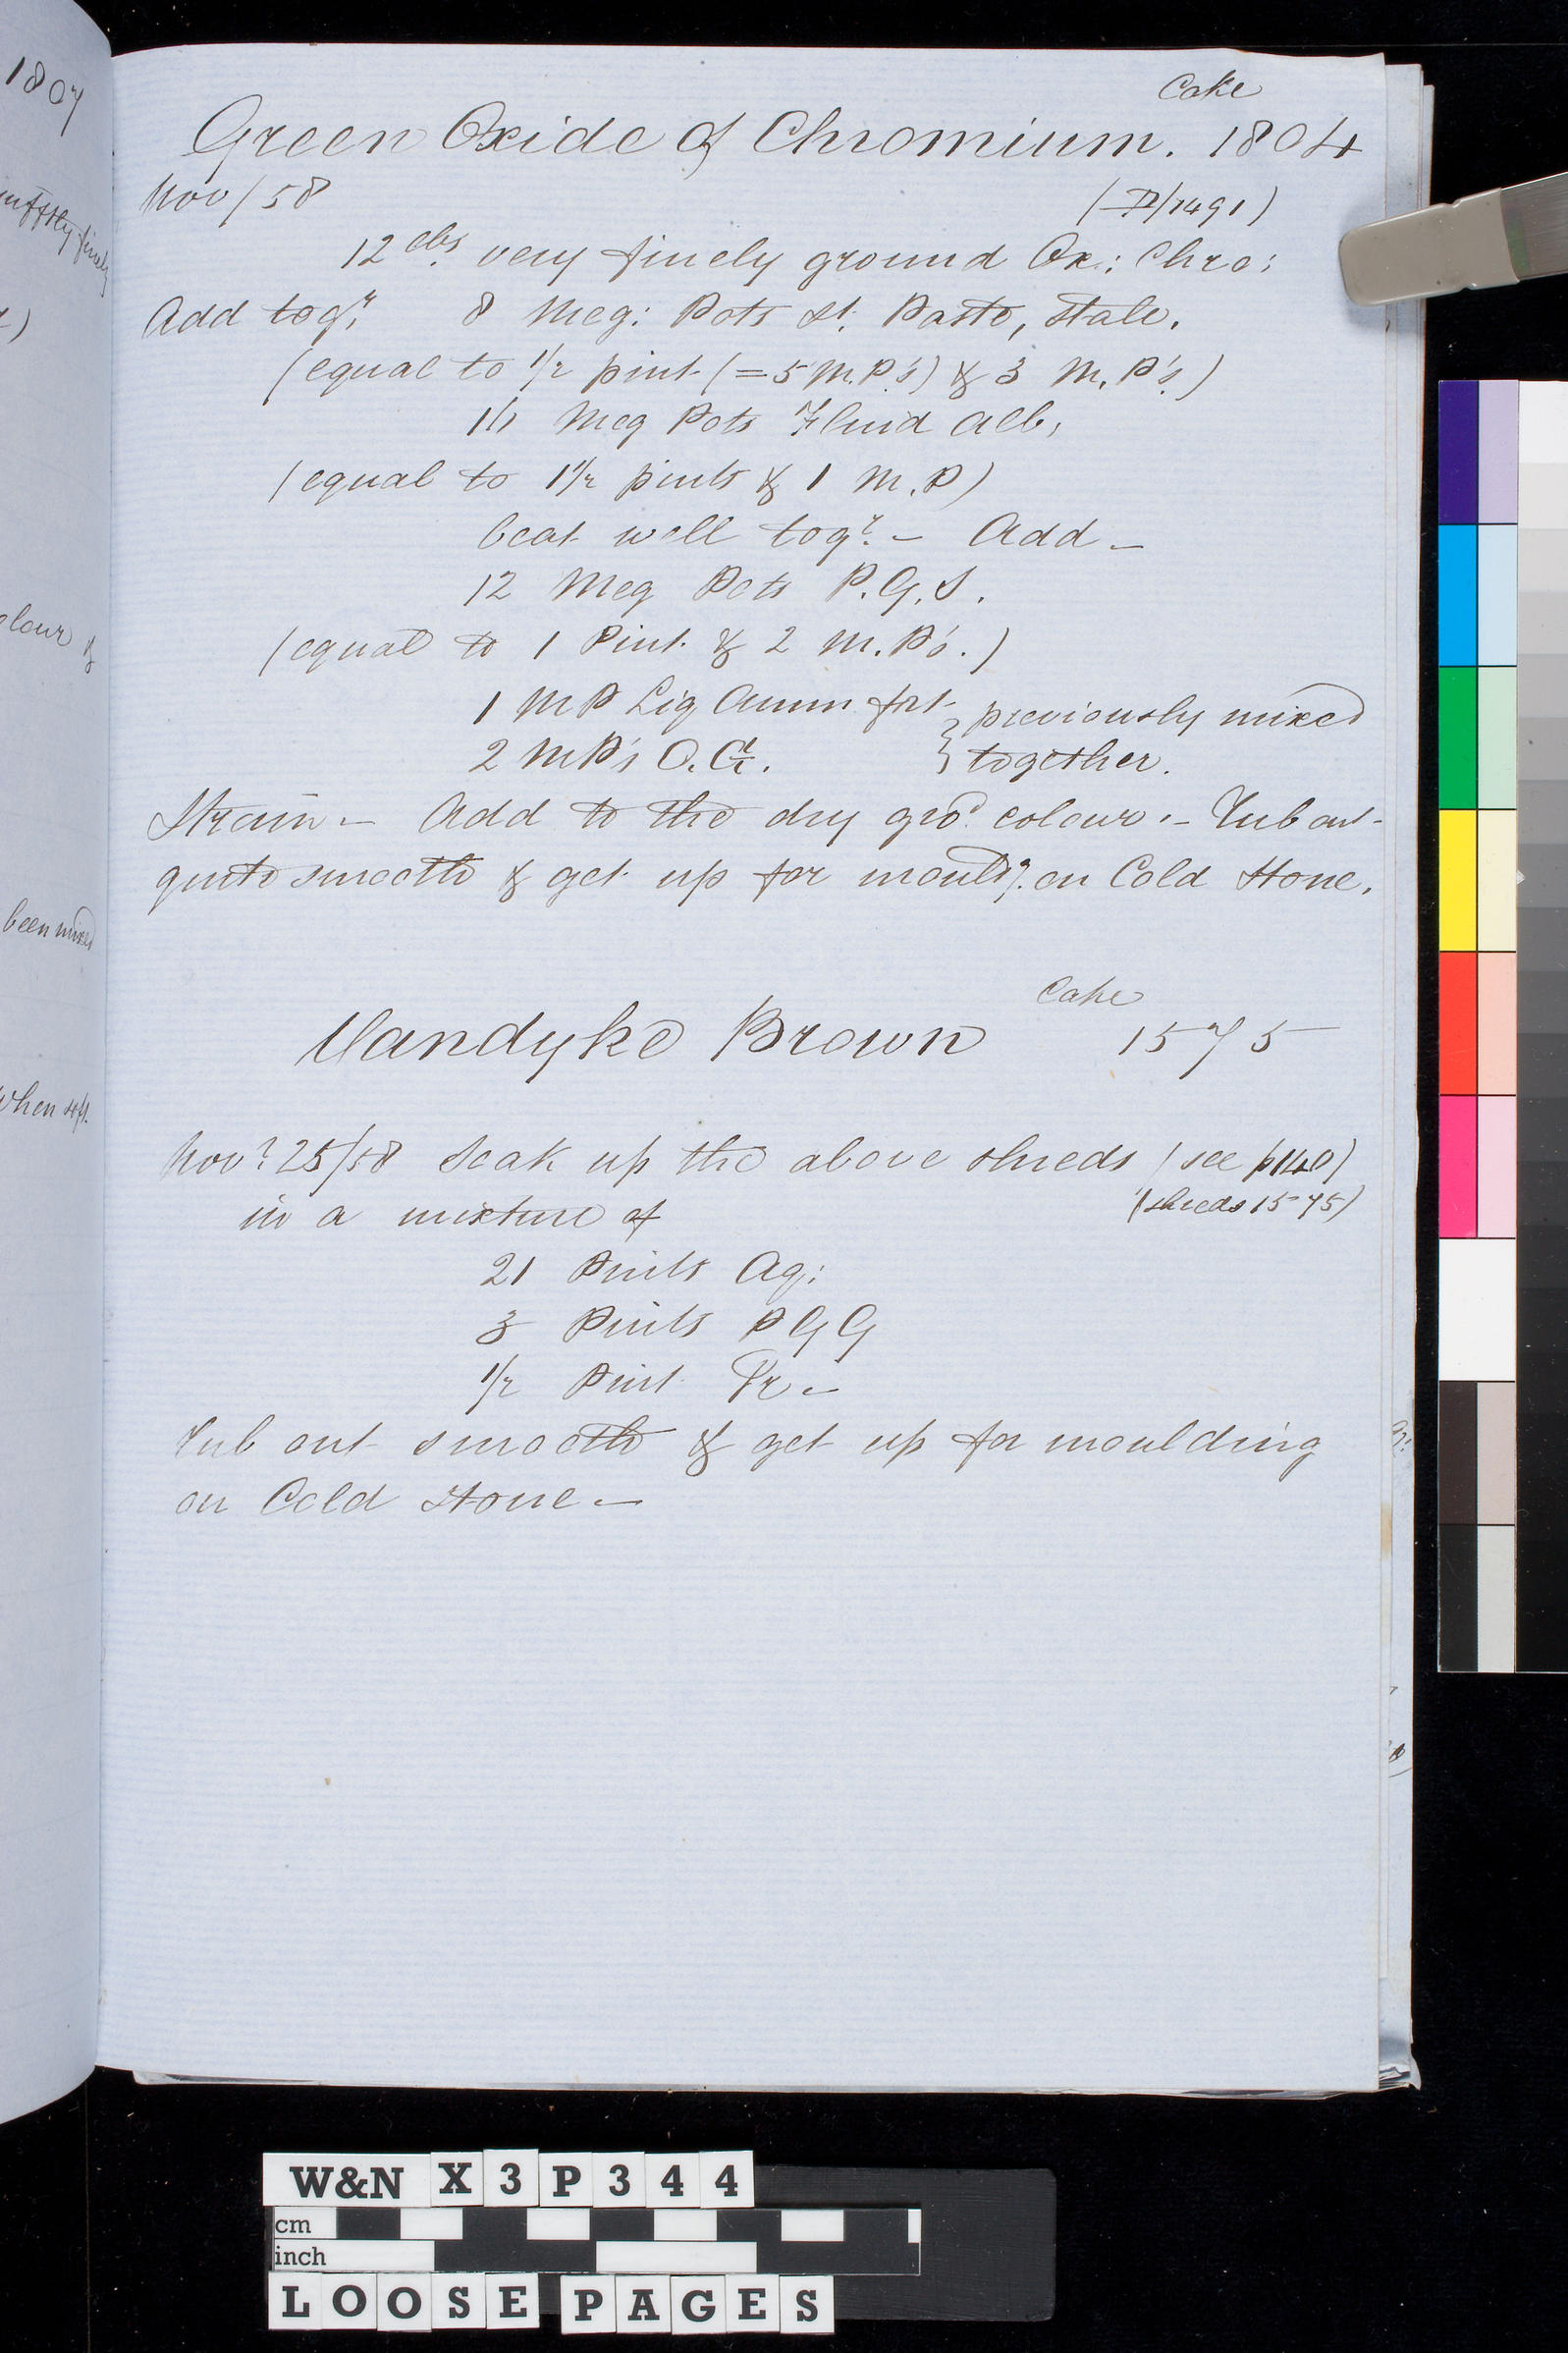 1807
been mixed
when soft
Cake
Green Oxide of Chromium. 1804
Nov/58
12 lbs. very finely ground Ox: Chro:
Add togr. 8 Meg: Pots St. Paste, Stale.
(equal to 1/2 pint (= 5 M.P's) & 3 M.P's.)
Meg Pots Fluid Alb,
(equal to 1 1/2 pints & 1 M.P)
beat well togr. — Add —
12 Meg Pots P.G.S.
(equal to 1 Pint & 2 M.P's.)
1 MP Liq Amm fort } previously mixed
2 MP's O.G. } together.
Strain — Add to the dry gro'd colour. — Rub out
quite smooth & get up for mouldg. on Cold Stone.
Cake
Vandyke Brown 1575
Novr. 25/58 Soak up the above shreds (see p140)
(shreds 1575)
in a mixture of
21 Pints Aq:
3 Pints P G G
1/2 Pint Tr —
Rub out smooth & get up for moulding
on Cold Stone —
W&N X3P344
cm
inch
LOOSE PAGES